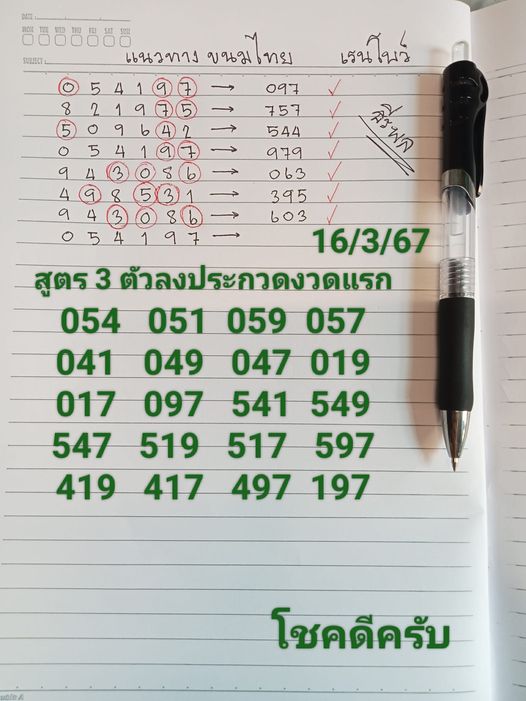 DATE
MON TUE WED THU FRI SAT SUN
SUBJECT:
แนวทาง ขนมไทย เรนโบว์
0 5 4 1 9 7 → 097 ✓
8 2 1 9 7 5 → 757 ✓
5 0 9 6 4 2 → 544 ✓
0 5 4 1 9 7 → 979 ✓
9 4 3 0 8 6 → 063 ✓
4 9 8 5 3 1 → 395 ✓
9 4 3 0 8 6 → 603 ✓
0 5 4 1 9 7 →
16/3/67
สูตร 3 ตัวลงประกวดงวดแรก
054 051 059 057
041 049 047 019
017 097 541 549
547 519 517 597
419 417 497 197
โชคดีครับ